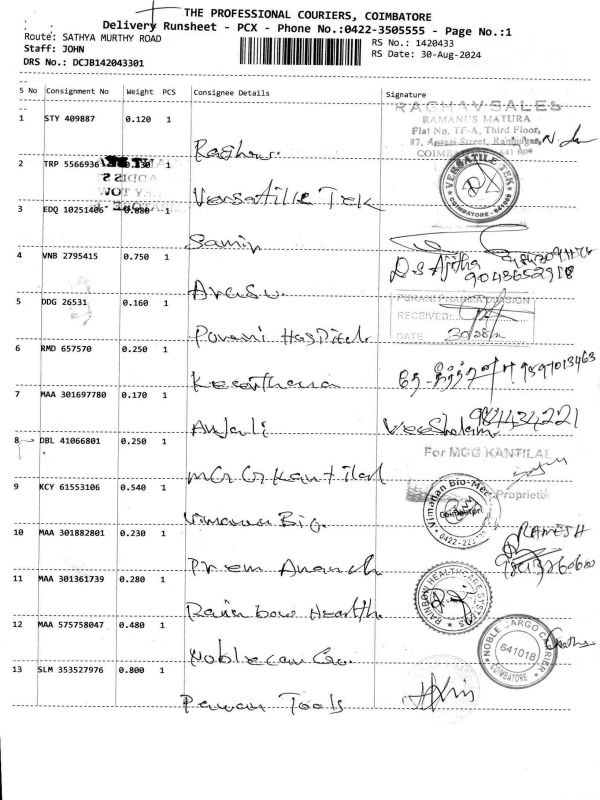 THE PROFESSIONAL COURIERS, COIMBATORE
Delivery Runsheet - PCX - Phone No.:0422-3505555 - Page No.:1
Route: SATHYA MURTHY ROAD
RS No.: 1420433
Staff: JOHN
RS Date: 30-Aug-2024
DRS No.: DCJB142043301
S No Consignment No Weight PCS Consignee Details Signature
1 STY 409887 0.120 1
RAGHAV SALES
RAMANI'S MATURA
Flat No. TF-A, Third Floor,
87, Street,
Raghav
2 TRP 5566936 1
Versatille Tek
VERSATILE TEK
COIMBATORE - 641
3 EDQ 10251406 1
Samin
4 VNB 2795415 0.750 1
9043652918
Arasu
5 DDG 26531 0.160 1
PURANI PHARMA DIVISION
RECEIVED:
DATE 30/08/
Porani Hospital
6 RMD 657570 0.250 1
9597013463
7 MAA 301697780 0.170 1
9894434221
Anjali
8 DBL 41066801 0.250 1
For MCG KANTILAL
MCG Kantilal
Proprietor
9 KCY 61553106 0.540 1
Vimanan Bio-Med
Coimbatore
Vimanan Bio.
10 MAA 301882801 0.230 1
RAMESH
Prem Anand
11 MAA 301361739 0.280 1
RAINBOW HEALTHCARE SYSTEMS
Rainbow Health
12 MAA 575758047 0.480 1
NOBLE CARGO CARRIER
641018
COIMBATORE
13 SLM 353527976 0.800 1
Pawan Tools